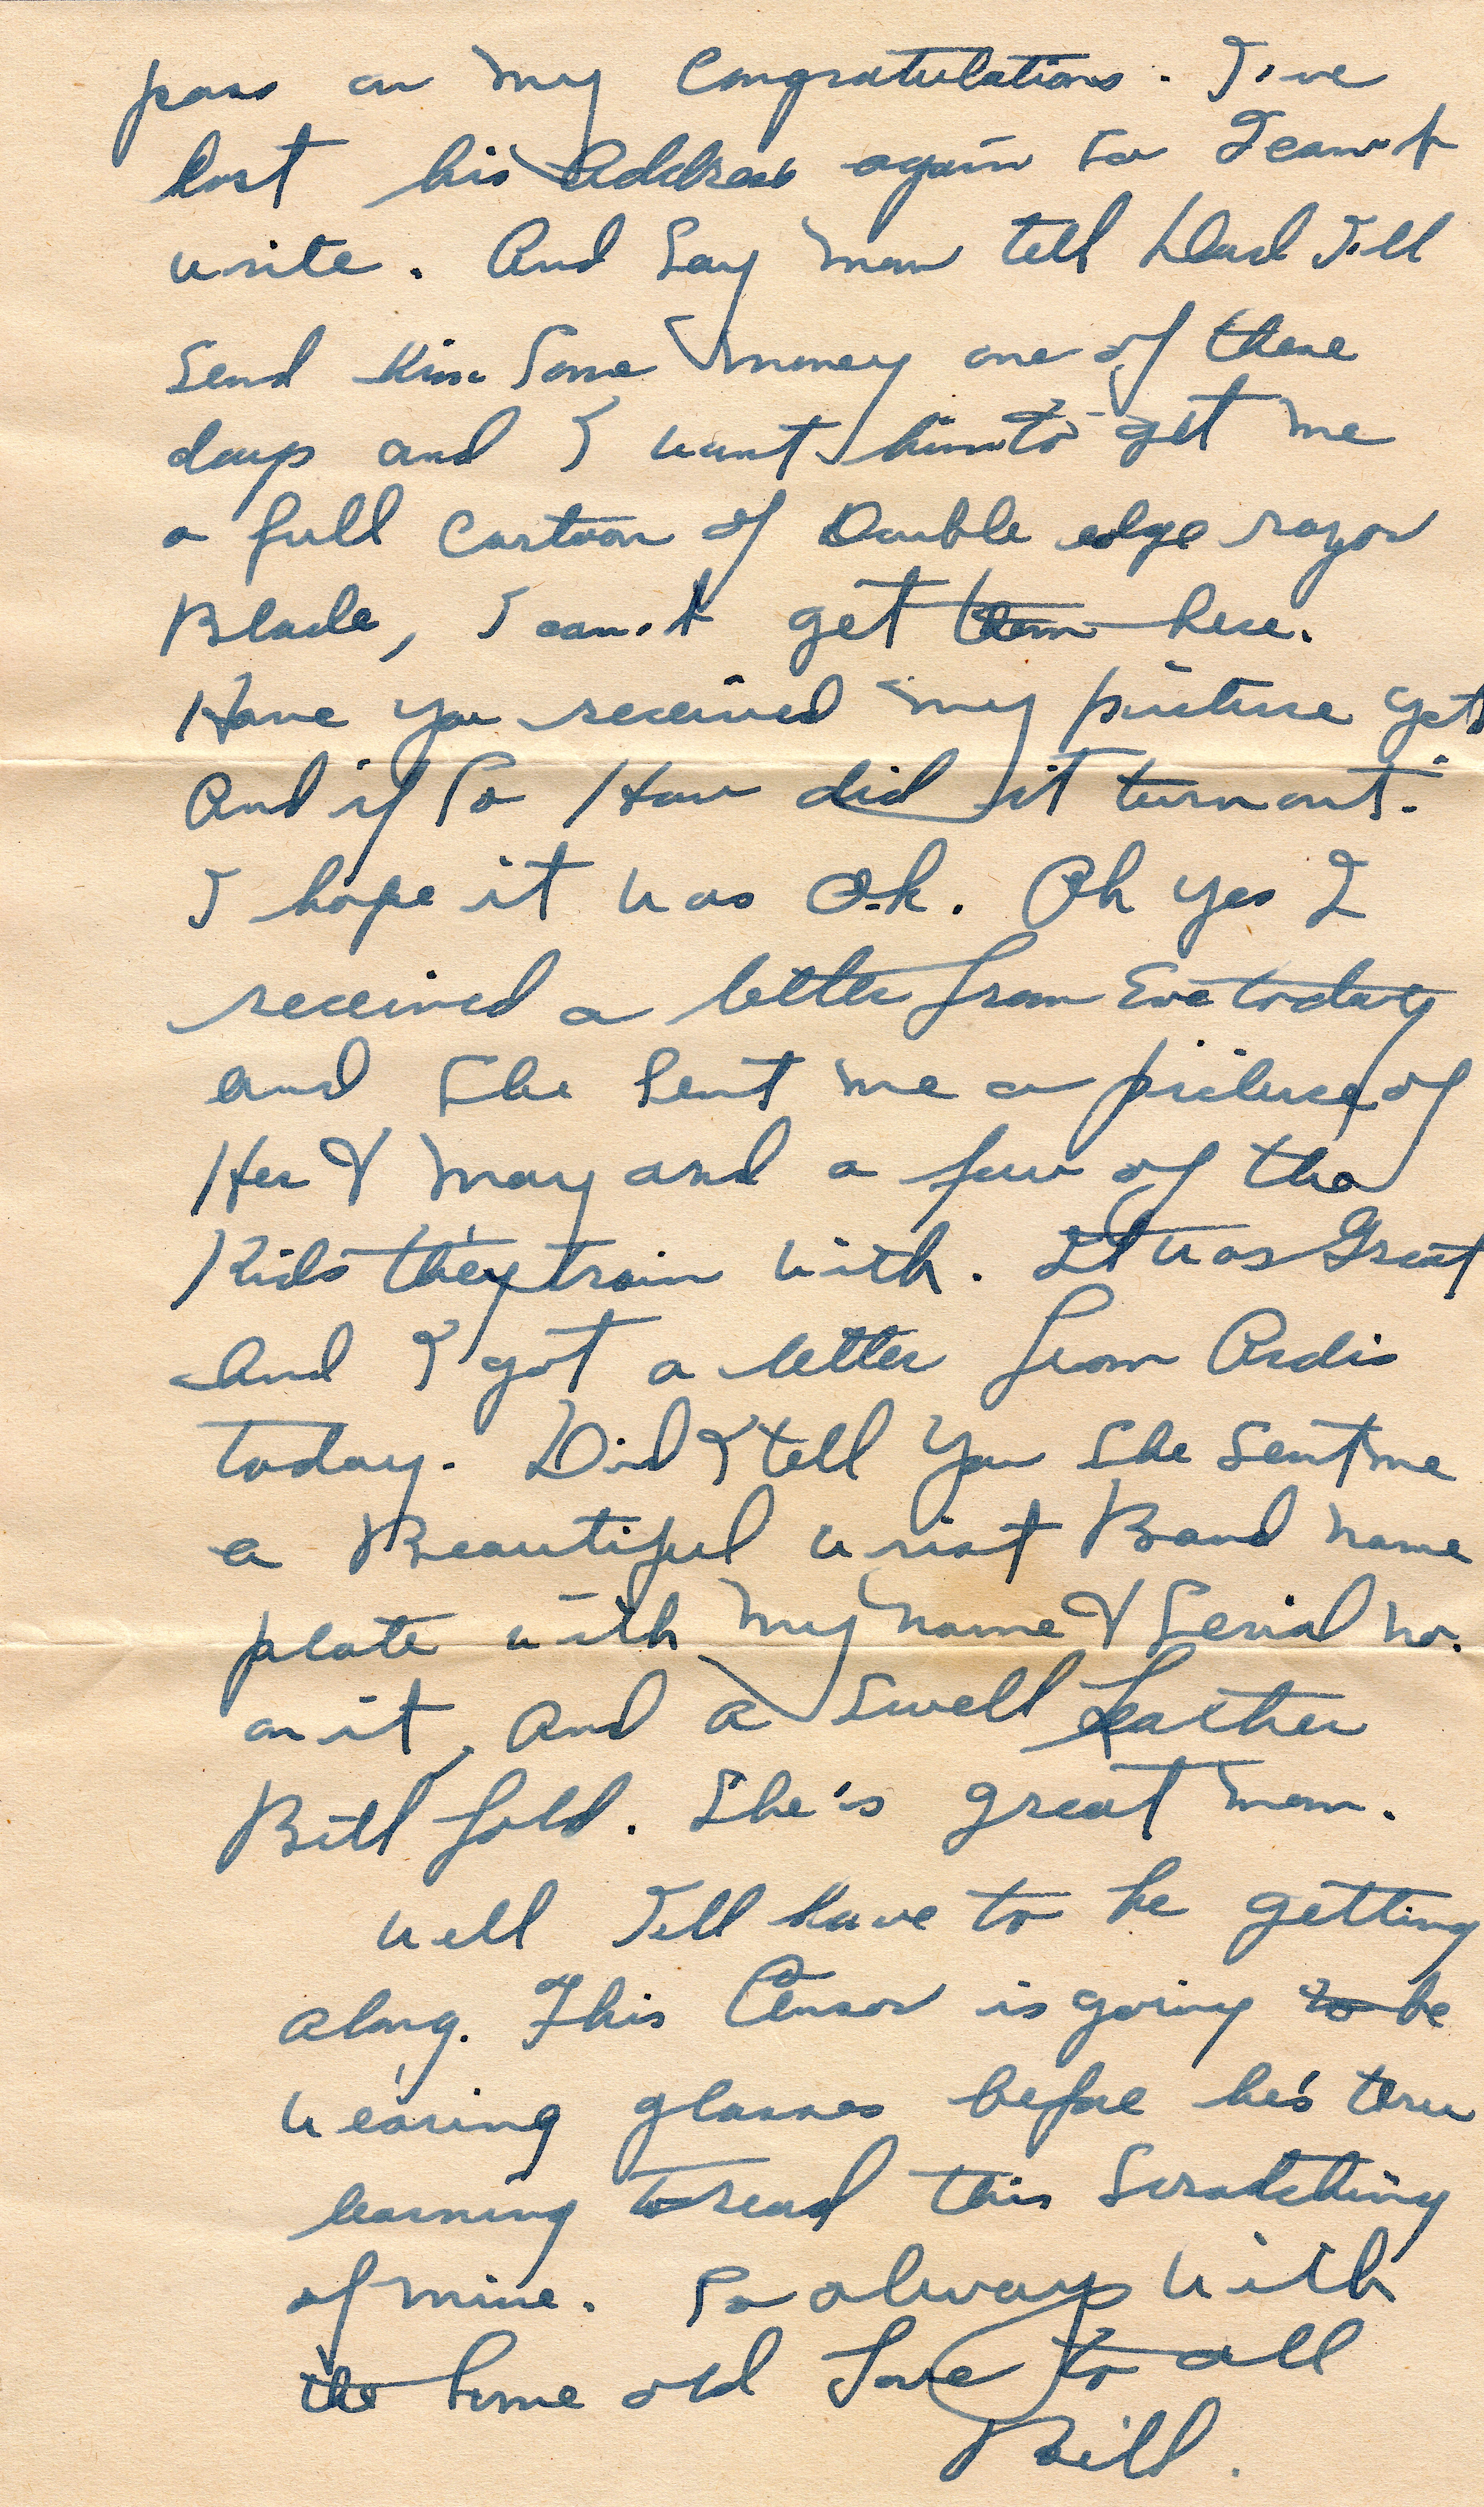 pass on my Congratulations. I've
lost his Address again so I can't
write. And Say mom tell Dad I'll
Send him Some money one of these
days and I want him to get me
a full Cartoon of Double edge razor
Blade, I can't get them here.
Have you received my picture yet
And if So How did it turn out.
I hope it was O.k. Oh yes I
received a letter from Eve today
and She Sent me a picture of
Her & May and a few of the
Kids they train with. It was Great
And I got a letter from Ardis
today. Did I tell you She Sent me
a Beautiful wrist Band name
plate with my name & Serial no.
on it, And a Swell Leather
Bill fold. She's great mom.
well I'll have to be getting
along. This Censor is going to be
wearing glasses before he's thru
learning to read this Scratching
of mine. So always with
the Same old Love to all
Bill.